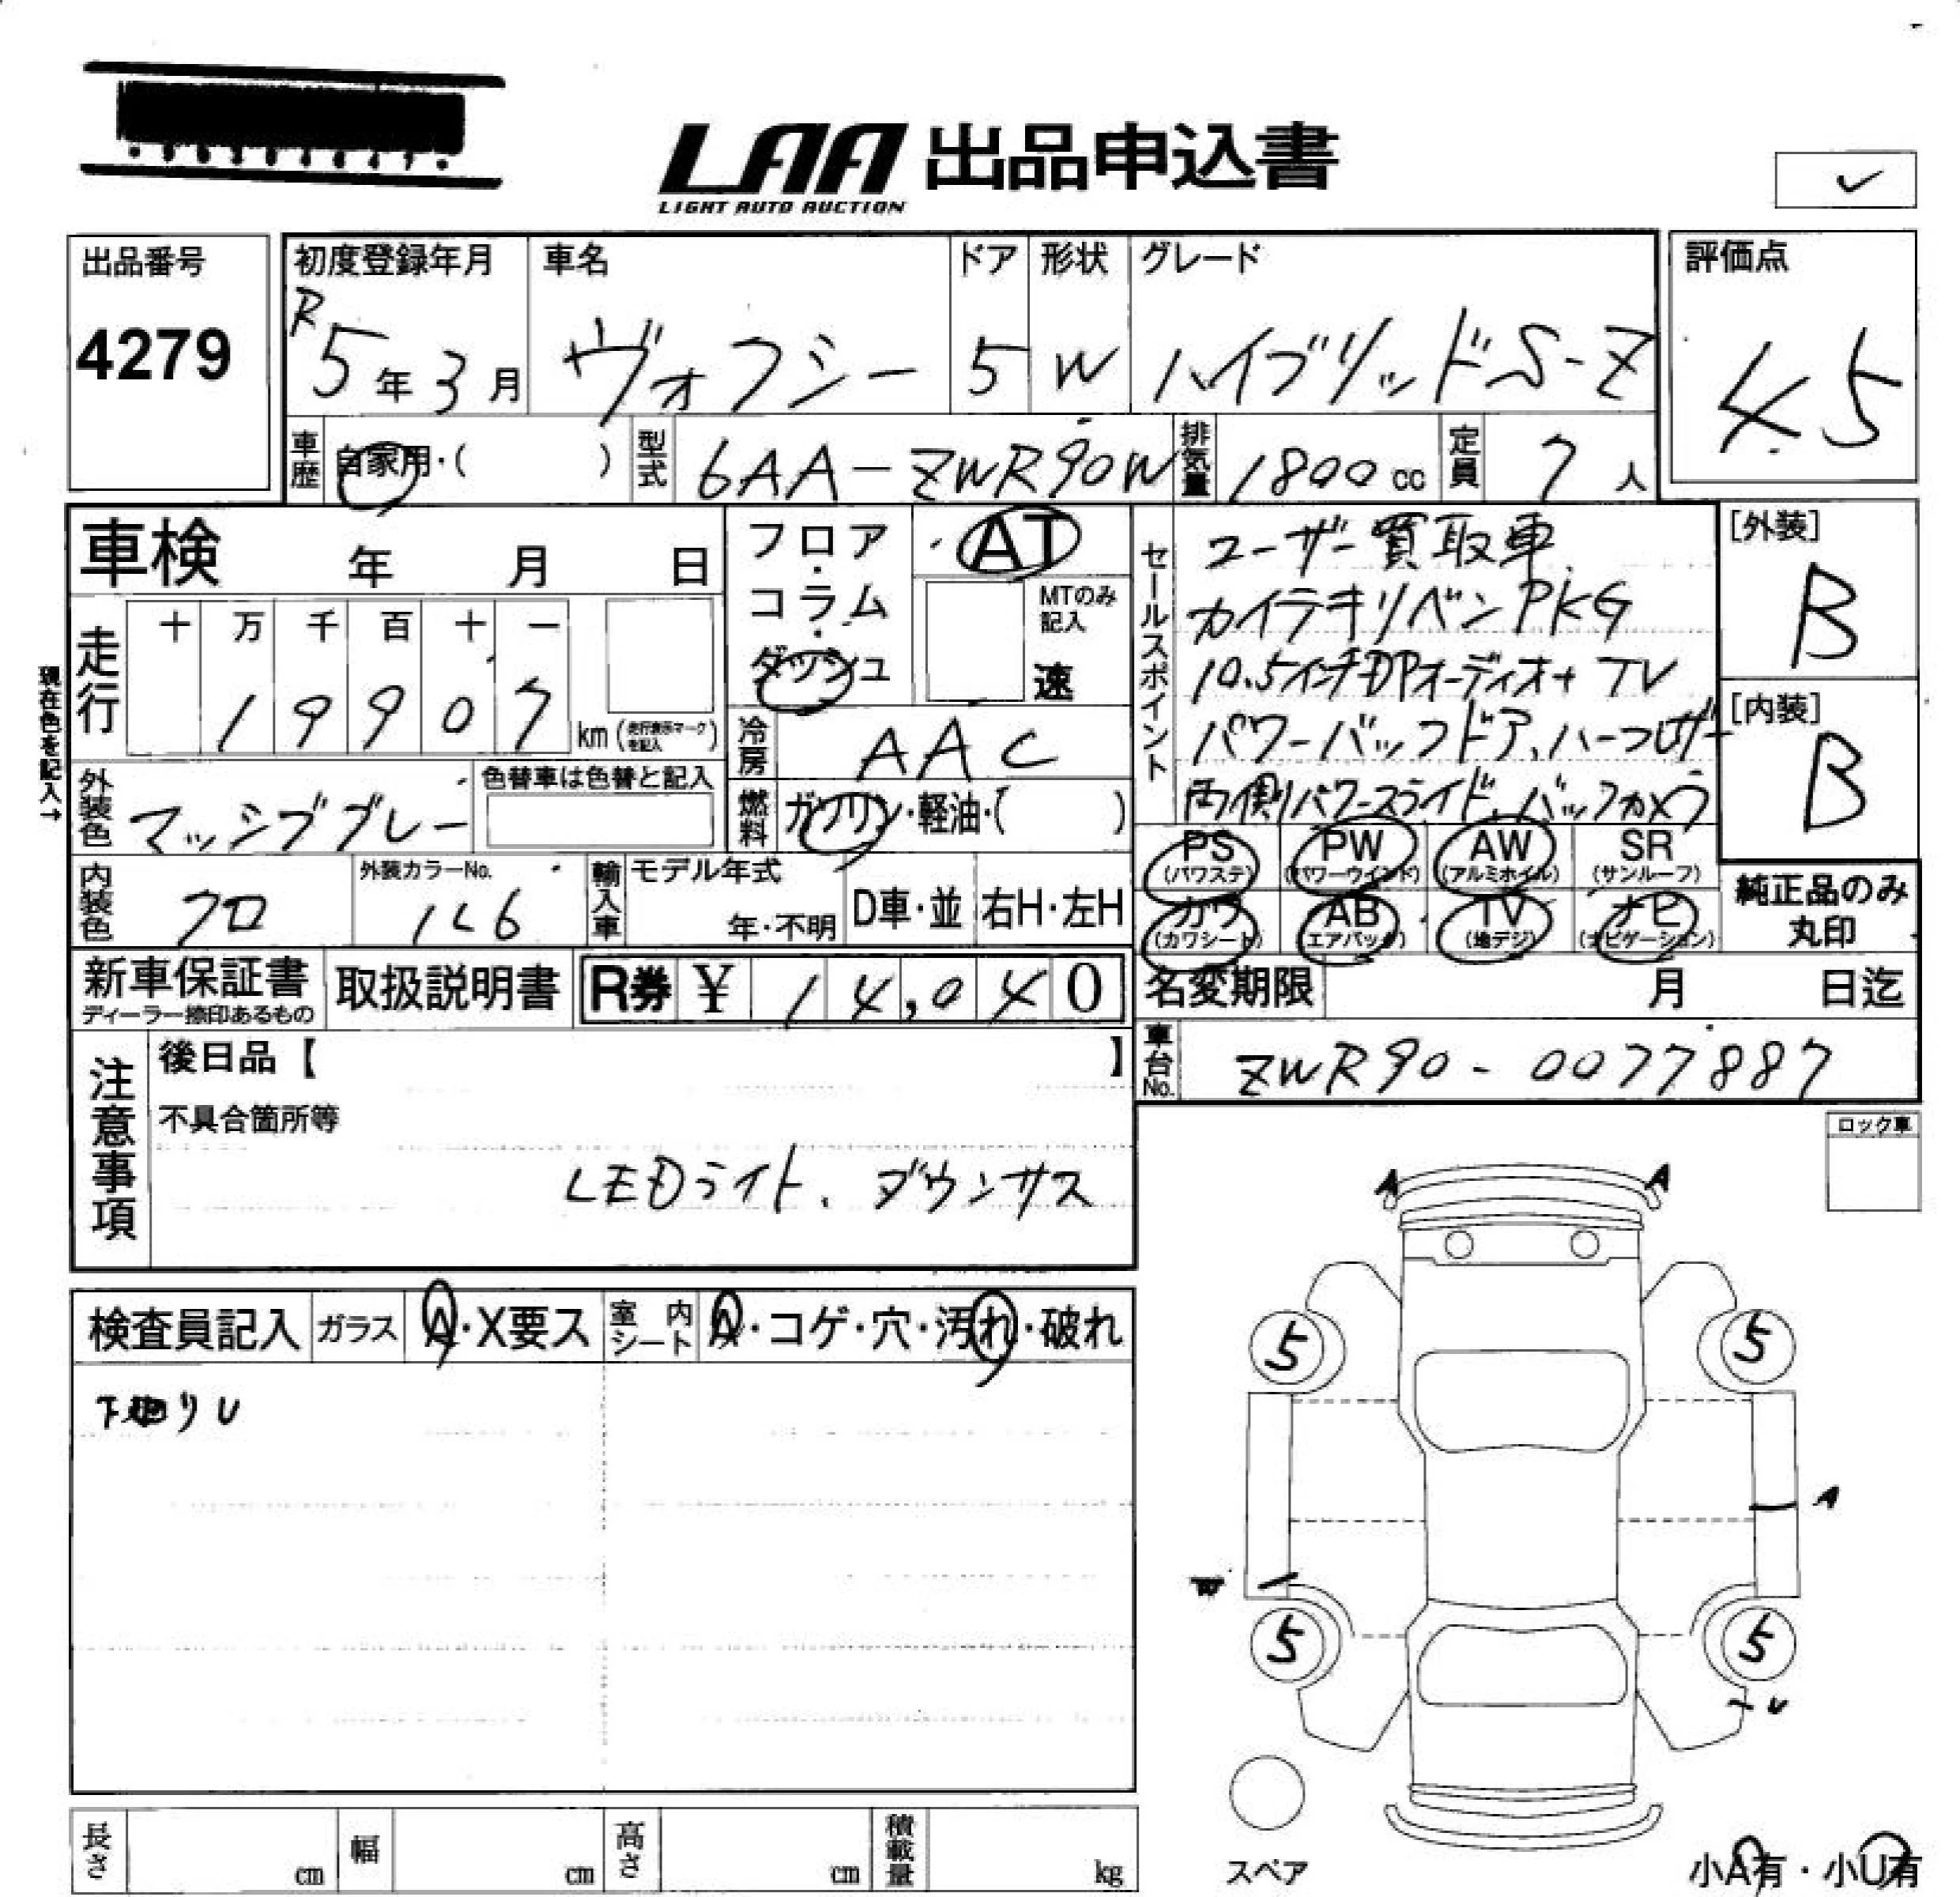 LAA 出品申込書
LIGHT AUTO AUCTION
出品番号
4279
初度登録年月
R5年3月
車名
ヴォクシー
ドア
5
形状
W
グレード
ハイブリッドS-Z
評価点
4.5
車歴
自家用・( )
型式
6AA-ZWR90W
排気量
1800cc
定員
7人
車検 年 月 日
現在色を記入→
走行
十 万 千 百 十 一
19907
km(走行表示マークを記入)
フロア・コラム・ダッシュ
AT
MTのみ記入
速
冷房
AAC
燃料
ガソリン・軽油・( )
外装色
マッシブグレー
色替車は色替と記入
内装色
クロ
外装カラーNo.
1L6
輸入車
モデル年式
年・不明
D車・並
右H・左H
セールスポイント
ユーザー買取車
カイテキリベンPKG
10.5インチDPオーディオ+TV
パワーバックドア、ハーフレザー
両側パワースライド、バックカメラ
[外装]
B
[内装]
B
PS
(パワステ)
PW
(パワーウインド)
AW
(アルミホイル)
SR
(サンルーフ)
カワ
(カワシート)
AB
エアバック)
TV
(地デジ)
ナビ
(ナビゲーション)
純正品のみ
丸印
新車保証書
ディーラー捺印あるもの
取扱説明書
R券 ¥ 14,040
名変期限 月 日迄
車台No.
ZWR90-0077887
注意事項
後日品【 】
不具合箇所等
LEDライト、ダウンサス
ロック車
検査員記入
ガラス
A・X要ス
室内シート
A・コゲ・穴・汚れ・破れ
下回りU
A
A
5
5
A
W
5
5
U
スペア
小A有・小U有
長さ cm
幅 cm
高さ cm
積載量 kg